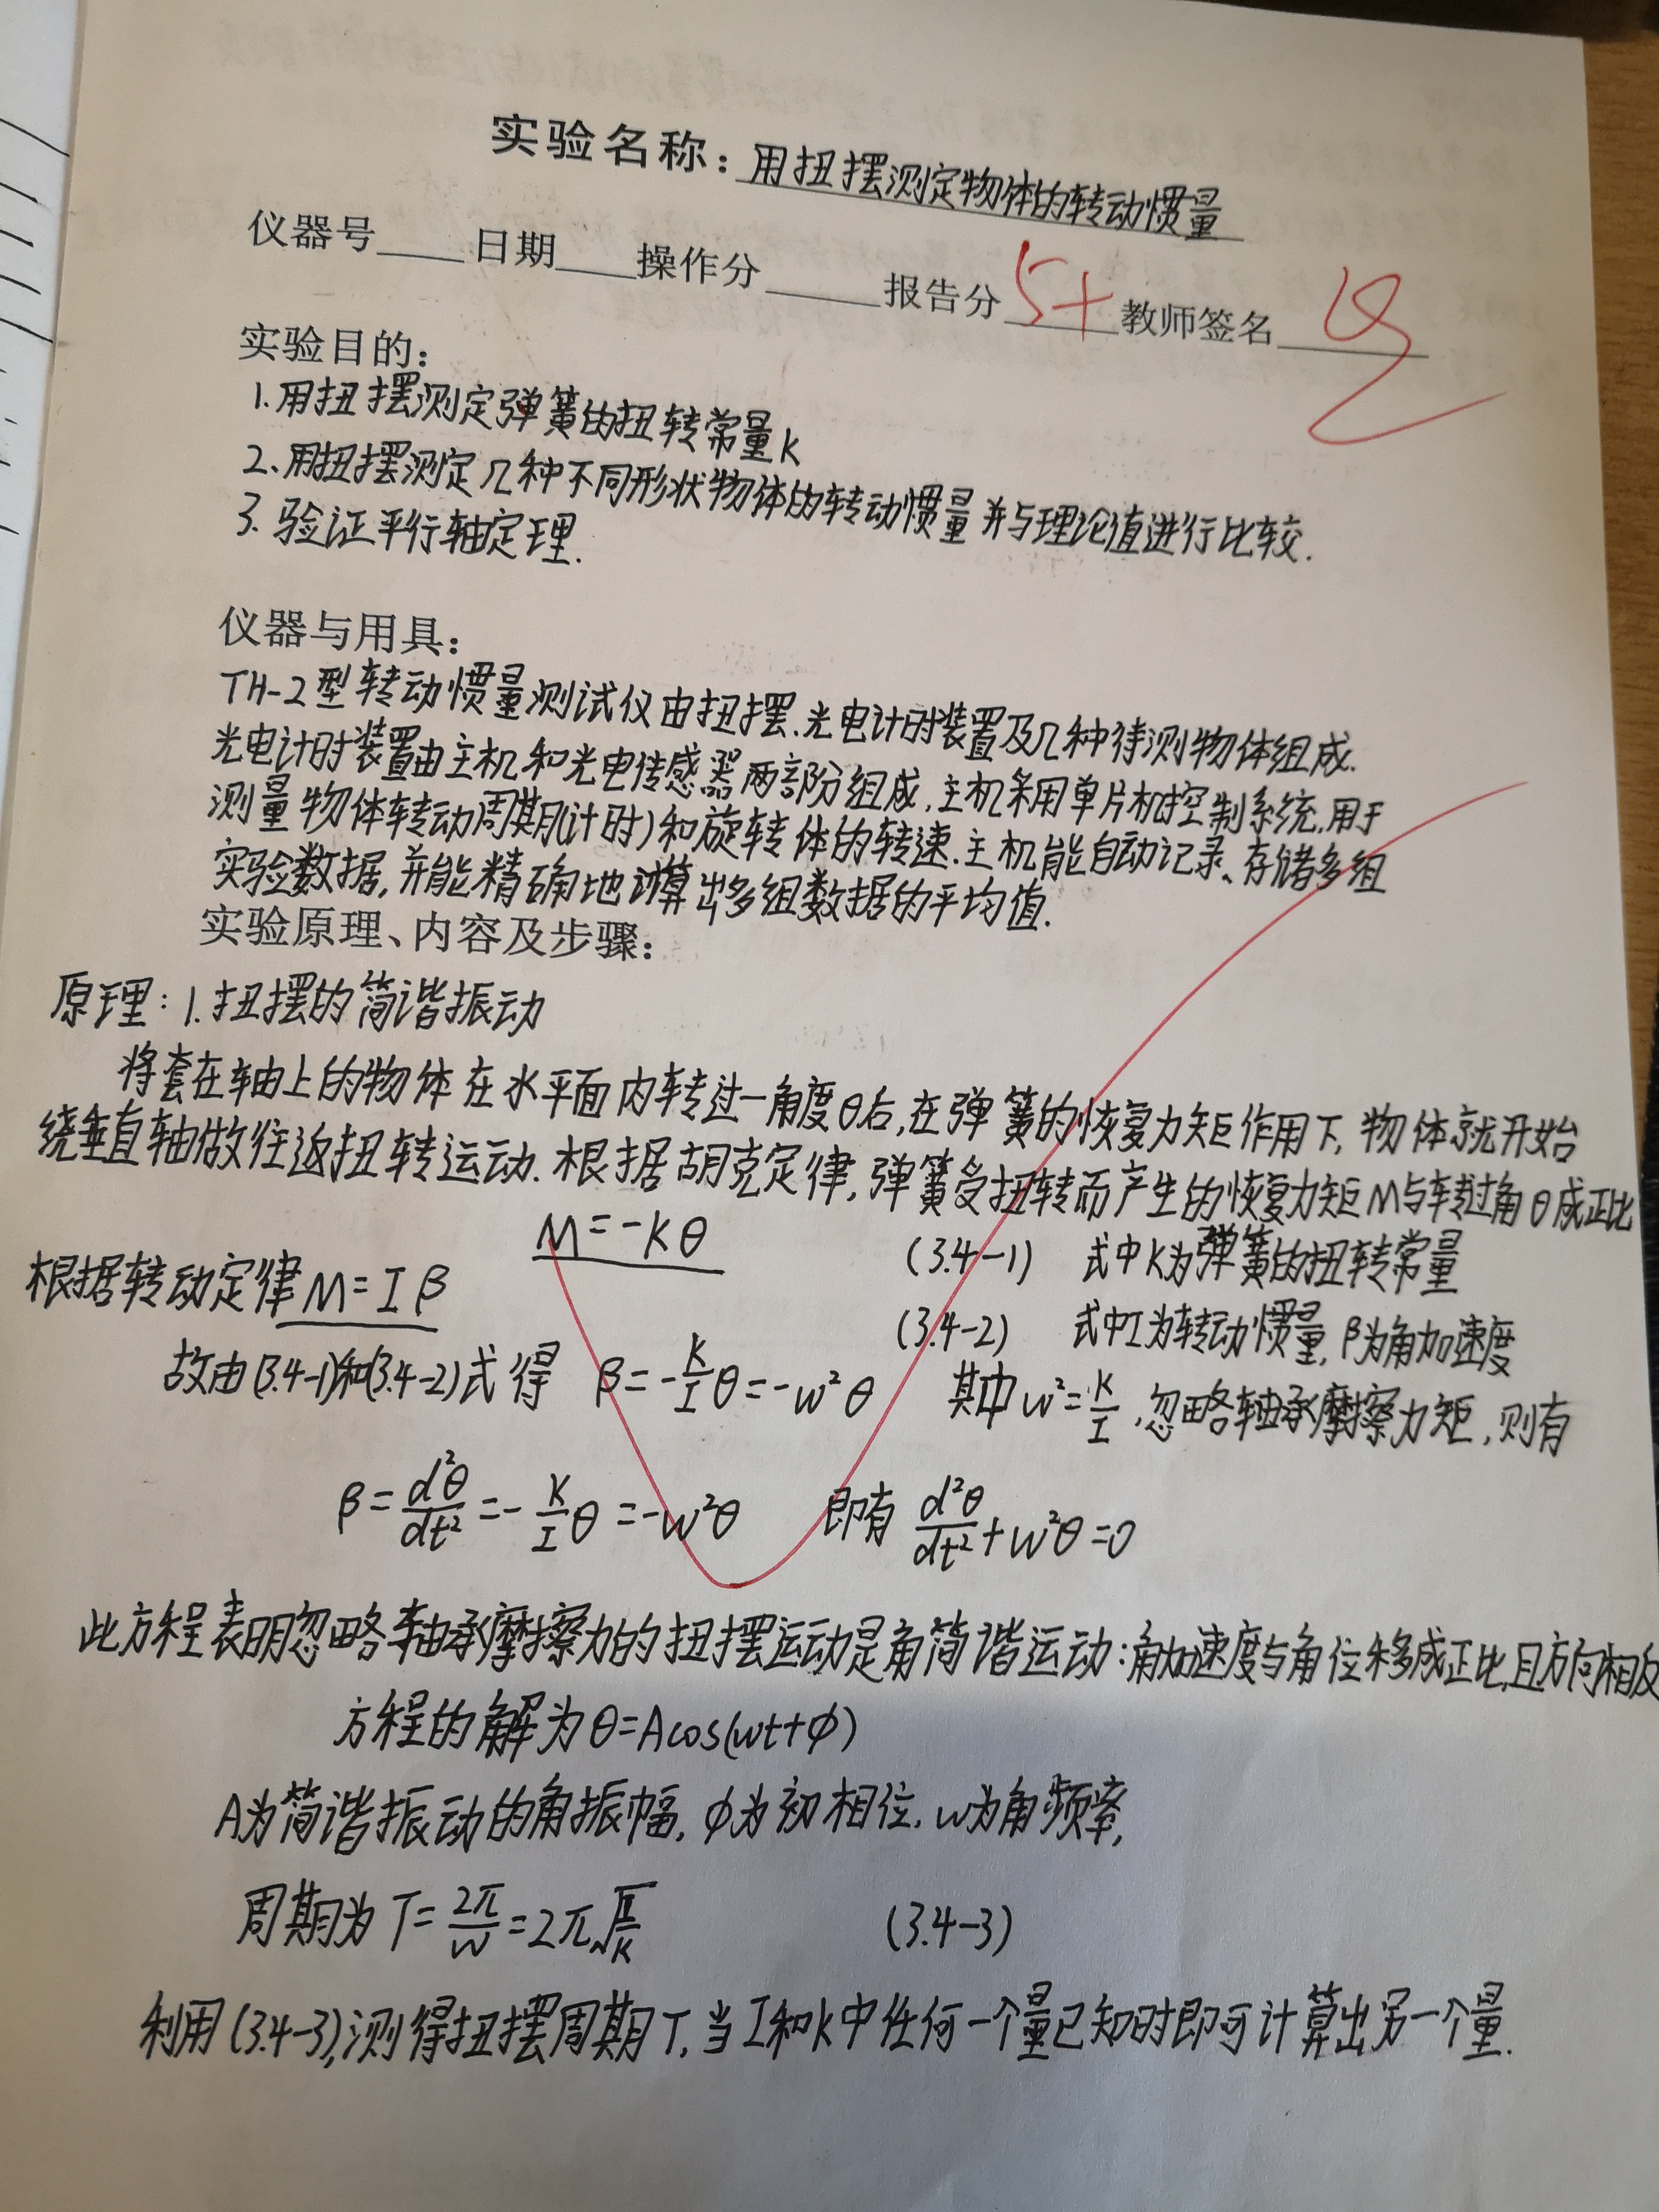 实验名称：用扭摆测定物体的转动惯量
仪器号____日期____操作分____报告分 5+ 教师签名
实验目的：
1.用扭摆测定弹簧的扭转常量K
2.用扭摆测定几种不同形状物体的转动惯量并与理论值进行比较.
3.验证平行轴定理.
仪器与用具：
TH-2型转动惯量测试仪由扭摆、光电计时装置及几种待测物体组成.
光电计时装置由主机和光电传感器两部分组成,主机采用单片机控制系统,用于
测量物体转动周期(计时)和旋转体的转速.主机能自动记录、存储多组
实验数据,并能精确地计算出多组数据的平均值.
实验原理、内容及步骤：
原理：1.扭摆的简谐振动
将套在轴上的物体在水平面内转过一角度θ后,在弹簧的恢复力矩作用下,物体就开始
绕垂直轴做往返扭转运动.根据胡克定律,弹簧受扭转而产生的恢复力矩M与转过角θ成正比
M=-Kθ (3.4-1) 式中K为弹簧的扭转常量
根据转动定律M=Iβ (3.4-2) 式中I为转动惯量,β为角加速度
故由(3.4-1)和(3.4-2)式得 β=-K/I θ=-w²θ 其中w²=K/I,忽略轴承摩擦力矩,则有
β=d²θ/dt²=-K/I θ=-w²θ 即有 d²θ/dt²+w²θ=0
此方程表明忽略轴承摩擦力的扭摆运动是角简谐运动:角加速度与角位移成正比,且方向相反
方程的解为θ=Acos(wt+φ)
A为简谐振动的角振幅,φ为初相位,w为角频率,
周期为T=2π/w=2π√I/K (3.4-3)
利用(3.4-3),测得扭摆周期T,当I和K中任何一个量已知时即可计算出另一个量.